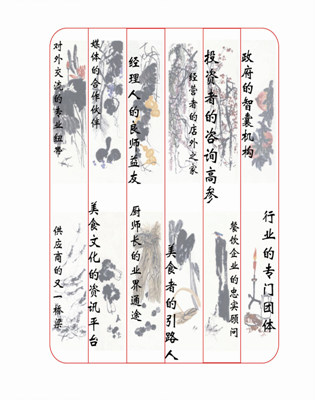 政府的智囊机构
投资者的咨询高参
经营者的店外之家
经理人的良师益友
媒体的合作伙伴
对外交流的专业纽带
行业的专门团体
餐饮企业的忠实顾问
美食者的引路人
厨师长的业界通途
美食文化的资讯平台
供应商的又一桥梁